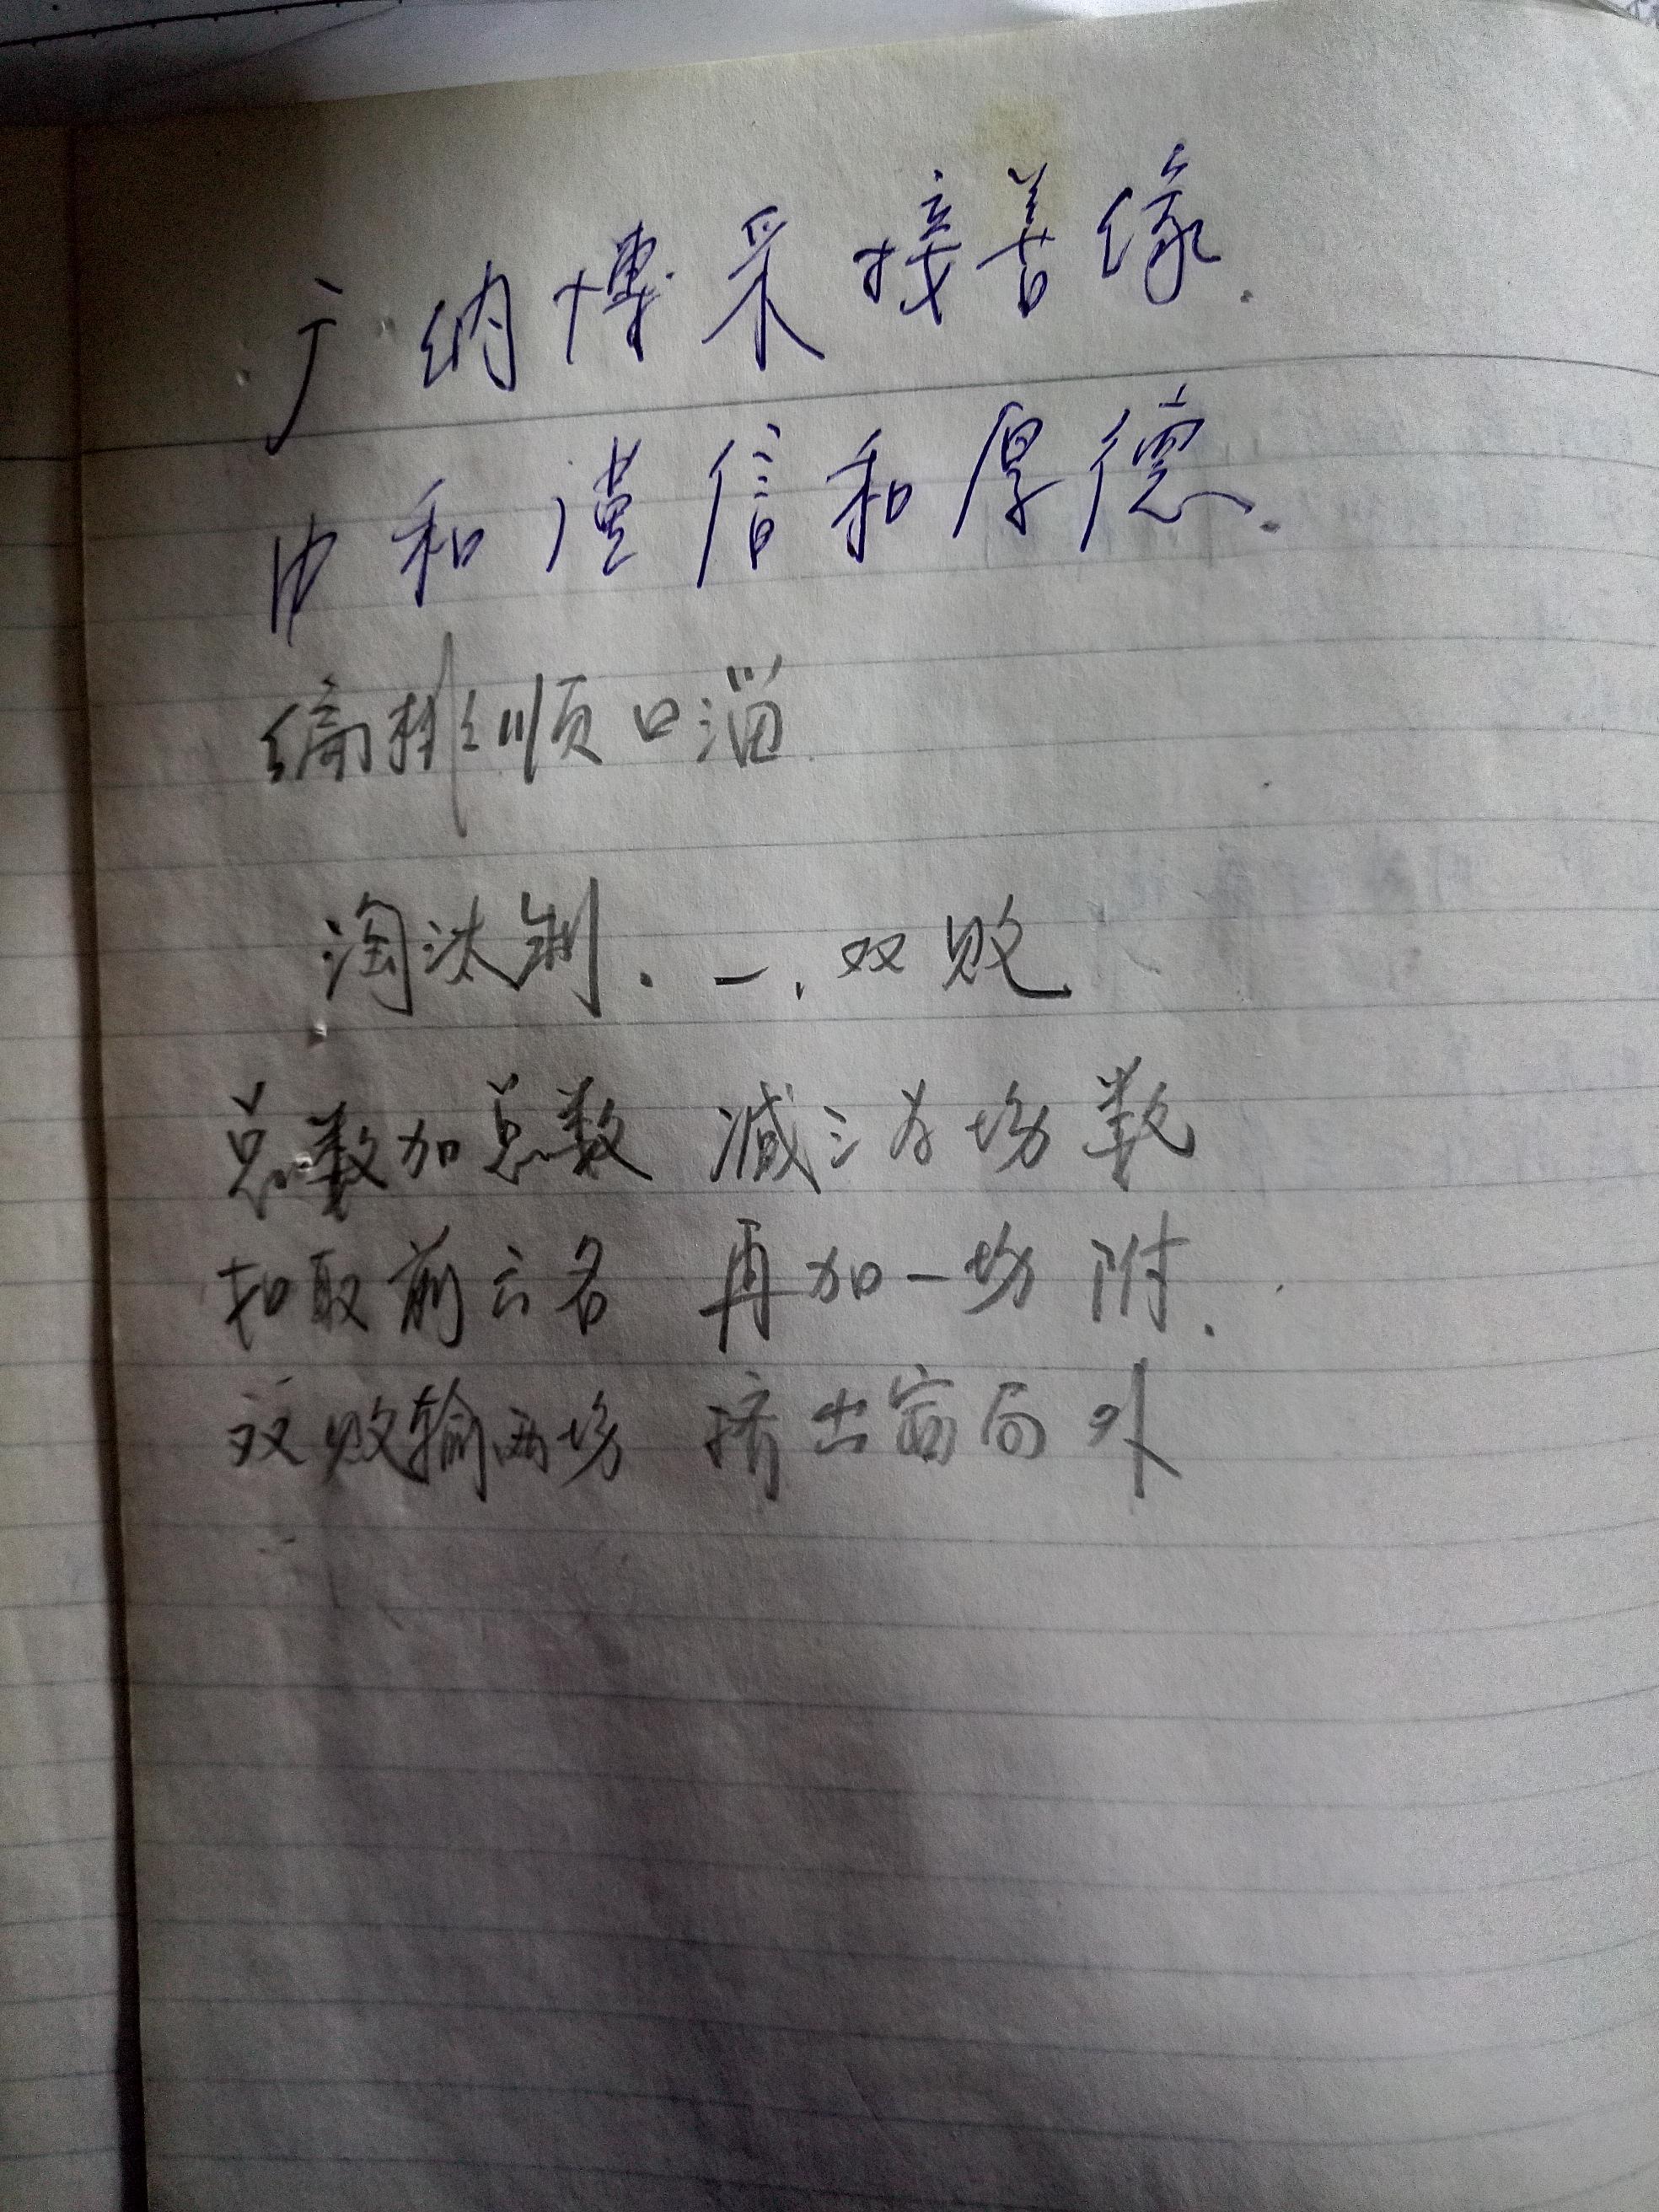 广纳博采接善缘.
中和谨信和厚德.
编排顺口溜
淘汰制. 一. 双败
总数加总数 减三为场数
扣取前六名 再加一场附.
双败输两场 挤出窗局外